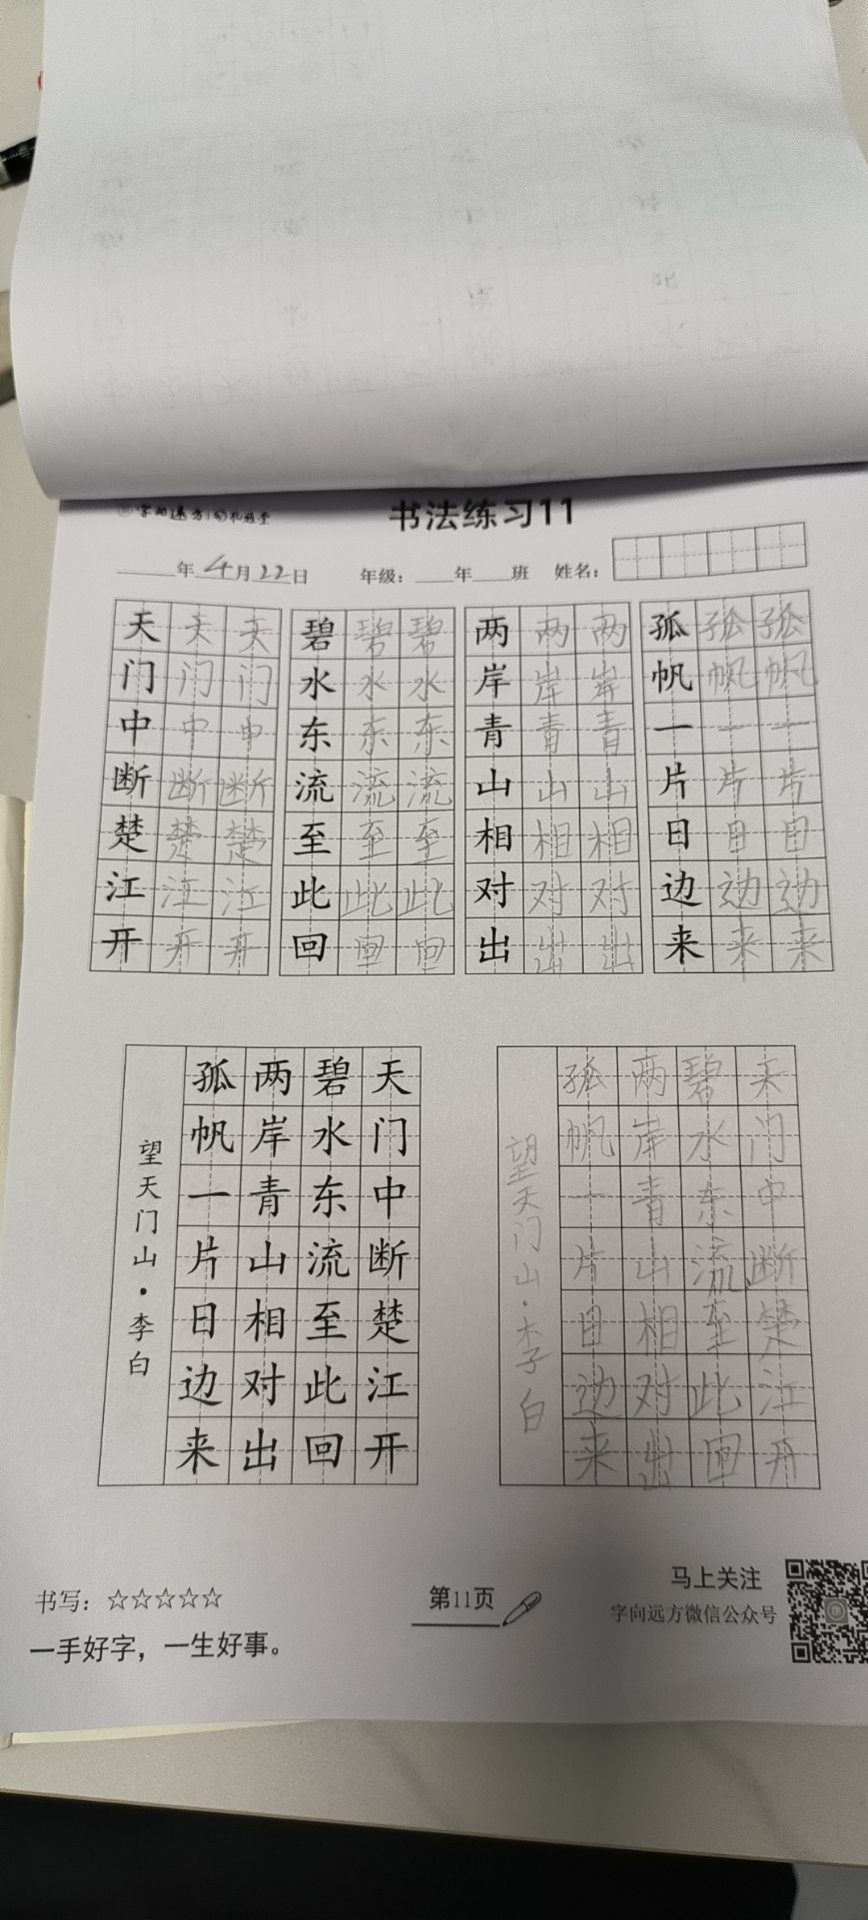 字向远方
书法练习11
____年 4月22日 年级：____年____班 姓名：
天 天 天 碧 碧 碧 两 两 两 孤 孤 孤
门 门 门 水 水 水 岸 岸 岸 帆 帆 帆
中 中 中 东 东 东 青 青 青 一 一 一
断 断 断 流 流 流 山 山 山 片 片 片
楚 楚 楚 至 至 至 相 相 相 日 日 日
江 江 江 此 此 此 对 对 对 边 边 边
开 开 开 回 回 回 出 出 出 来 来 来
天门中断楚江开
碧水东流至此回
两岸青山相对出
孤帆一片日边来
望天门山·李白
天门中断楚江开
碧水东流至此回
两岸青山相对出
孤帆一片日边来
望天门山·李白
书写：☆☆☆☆☆
一手好字，一生好事。
第11页
马上关注
字向远方微信公众号